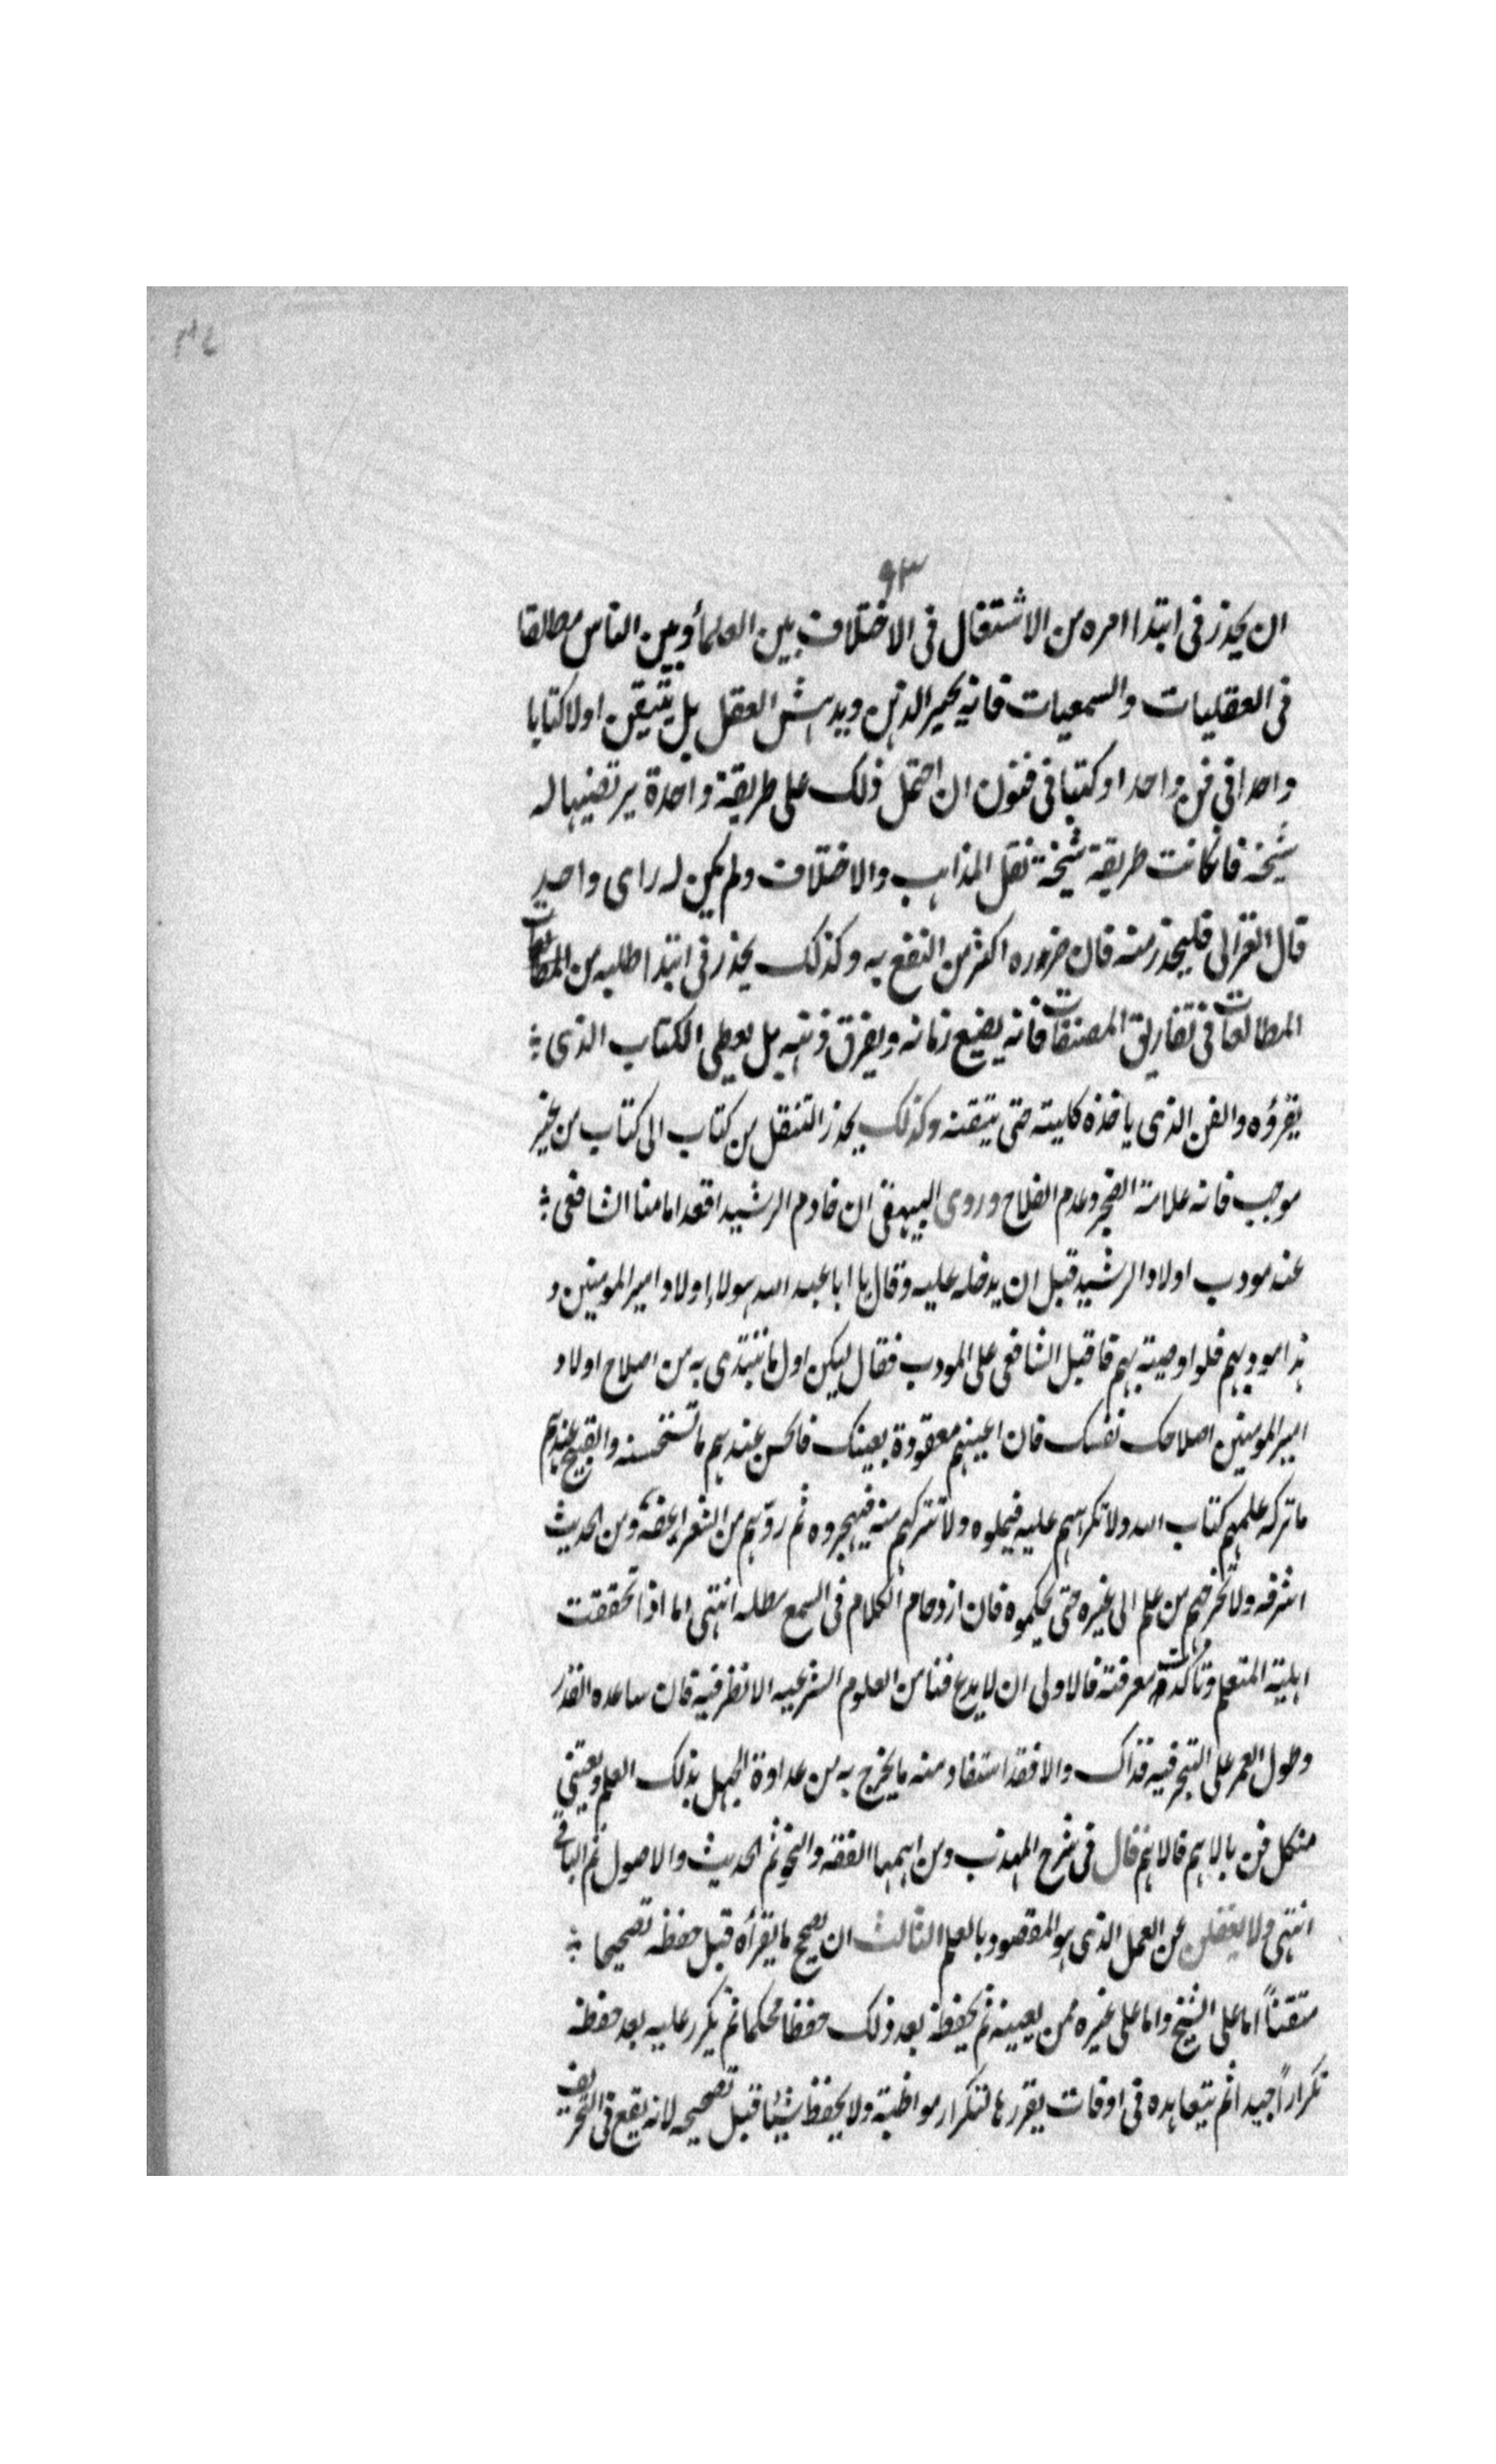 ٩٣
ان يحذر فى ابتدا امره من الاشتغال فى الاختلاف بين العلمأ وبين الناس مطالقا
فى العقليات والسمعيات فانه يحير الذهن ويدهش العقل بل يتيقن اولا كتابا
واحدا فى فن واحد او كتبا فى فنون ان احتمل ذلك على طريقة واحدة يرتضيها له
شيخه فان كانت طريقة شيخه نقل المذاهب والاختلاف ولم يكن له راى واحد
قال الغزالى فليحذر منه فان ضرره اكثر من النفع به وكذلك يحذر فى ابتدا طلبه من
المطالعات فى تفاريق المصنفات فانه يضيع زمانه ويفرق ذهنه بل يعطى الكتاب الذى
يقرؤه والفن الذى ياخذه كليته حتى يتقنه وكذلك يحذر التنقل من كتاب الى كتاب من غير
موجب فانه علامة الضجر وعدم الفلاح وروى البيهقى ان خادم الرشيد اقعد امامنا الشافعى
عند مودب اولاد الرشيد قبل ان يدخله عليه وقال يا ابا عبد الله هولاء اولاد امير المومنين و
هذا مودبهم فلو اوصيته بهم فاقبل الشافعى على المودب فقال ليكن اول ما تبتدى به من اصلاح اولاد
امير المومنين اصلاحك نفسك فان اعينهم معقودة بعينك فالحسن عندهم ما تستحسنه والقبيح عندهم
ما تركه علمهم كتاب الله ولا تكراههم عليه فيملوه ولا تتركهم منه فيهجروه ثم روّهم من الشعر اعفه ومن الحديث
اشرفه ولا تخرجهم من علم الى غيره حتى يحكموه فان ازدحام الكلام فى السمع انتهى اما اذا تحققت
اهلية المتعلم وتاكدت معرفته فالاولى ان لا يدع فنا من العلوم الشرعيه الا نظر فيه فان ساعده القدر
وطول العمر على التبحر فيه فذاك والا فقد استفاد منه ما يخرج به من عداوة الجهل بذلك العلم ويعتنى
من كل فن بالاهم فالاهم قال فى شرح المهذب ومن اهمها الفقه والنحو ثم الحديث والاصول ثم الباقى
انتهى ولا يغفلن عن العمل الذى هو المقصود بالعلم الثالث ان يصحح ما يقرأه قبل حفظه تصحيحا
متقناً اما على الشيخ واما على غيره ممن يعينه ثم يحفظه بعد ذلك حفظا محكما ثم يكرر عليه بعد حفظه
تكراراً جيدا ثم يتعاهده فى اوقات يقررها لتكرار مواظبته ولا يحفظ شيئا قبل تصحيحه لانه يقع فى التحريف